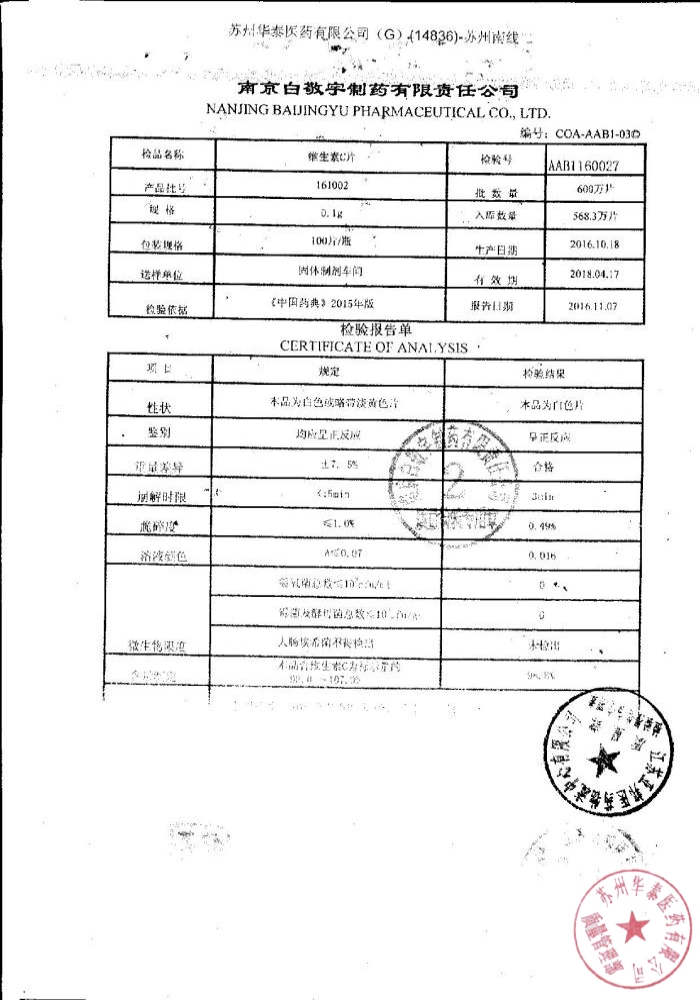 苏州华泰医药有限公司（G）(14836)-苏州南线
南京白敬宇制药有限责任公司
NANJING BAIJINGYU PHARMACEUTICAL CO., LTD.
编号：COA-AAB1-03
检品名称 维生素C片 检验号 AAB1160027
产品批号 161002 批数量 600万片
规格 0.1g 入库数量 568.3万片
包装规格 100片/瓶 生产日期 2016.10.18
送样单位 固体制剂车间 有效期 2018.04.17
检验依据 《中国药典》2015年版 报告日期 2016.11.07
检验报告单
CERTIFICATE OF ANALYSIS
项目 规定 检验结果
性状 本品为白色或略带淡黄色片 本品为白色片
鉴别 均应呈正反应 呈正反应
重量差异 ±7.5% 合格
崩解时限 ≤15min 3min
脆碎度 ≤1.0% 0.49%
溶液颜色 A≤0.07 0.016
需氧菌总数 0
霉菌及酵母菌总数 0
微生物限度 大肠埃希菌不得检出 未检出
本品含维生素C为标示量的
苏州华泰医药有限公司
质量管理